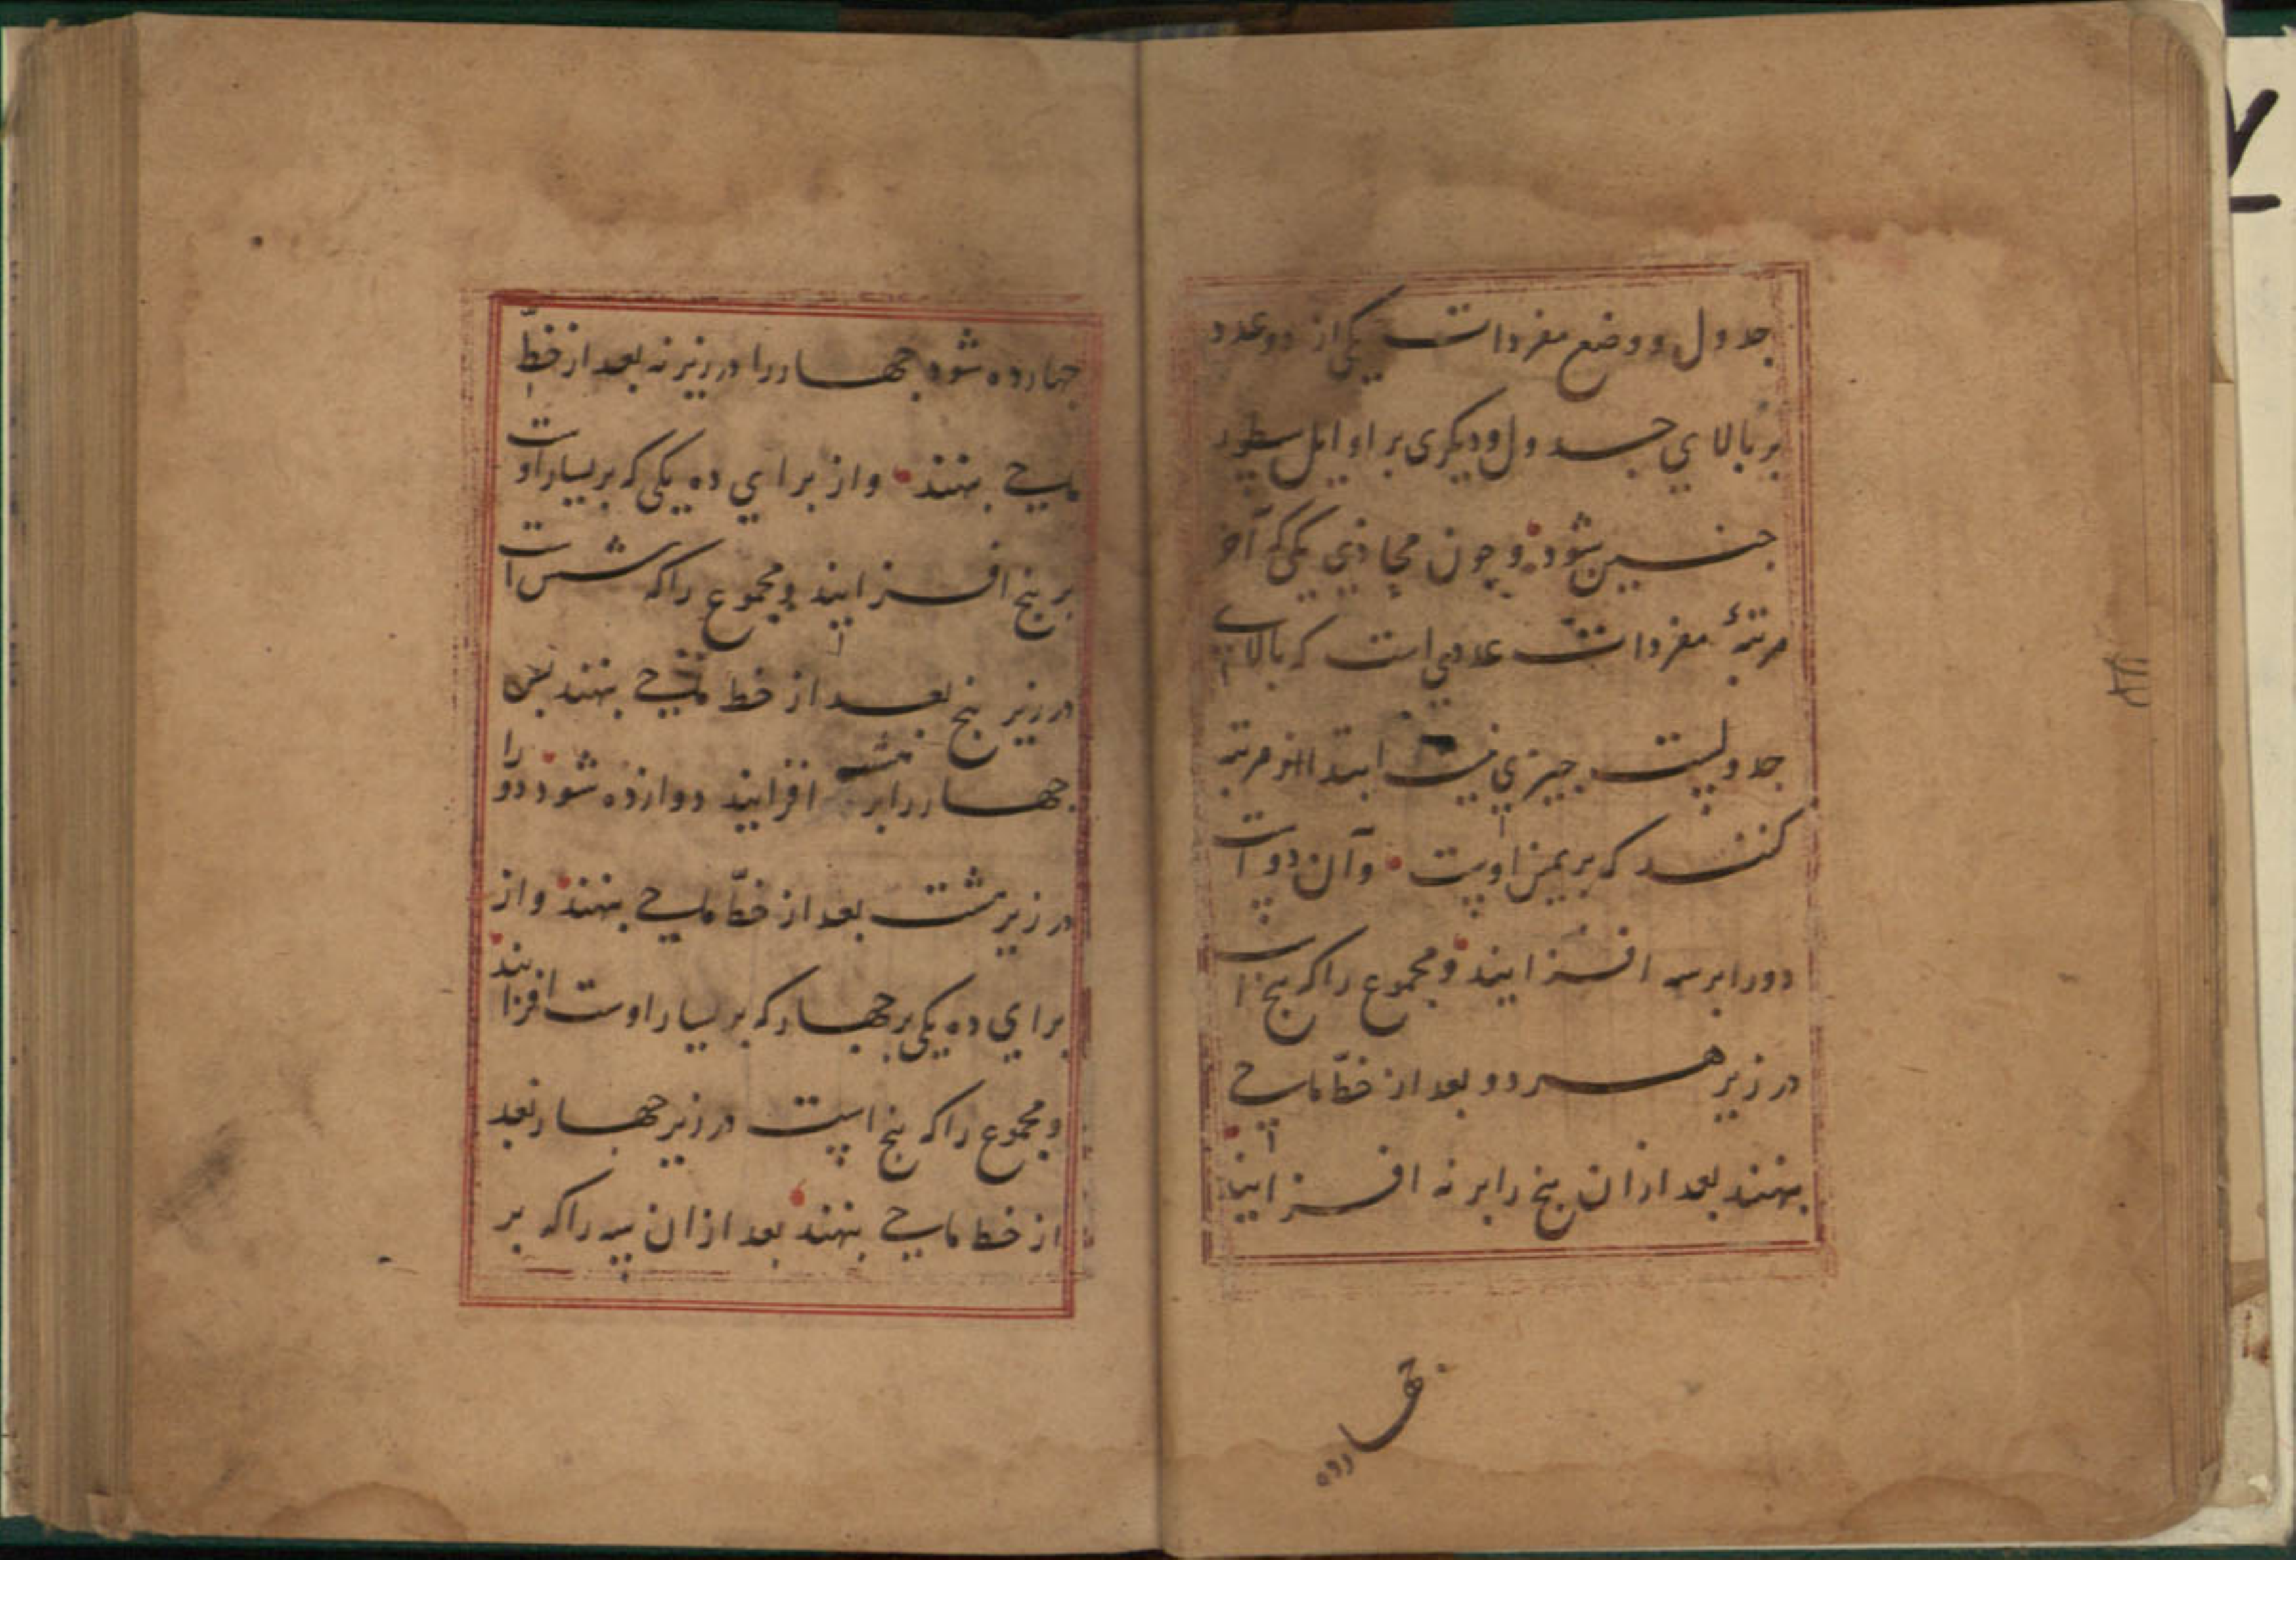 جدول و وضع مفردات یکی از دو عدد
بر بالای جدول و دیکری بر اوایل سطور
جنین شود و چون محاذی یکی که آخر
مرتبهٔ مفردات عددی است که بالای
جدولست جیزی نیست ابتدا از مرتبه
کنند که بر یمین اوست و آن دو است
دو را بر سه افزایند و مجموع را که پنج است
در زیر هر دو بعد از خطّ ماحی
بنهند بعد از ان پنج را بر نه افزایند
جهارده
جهارده شود جهار را در زیر نه بعد از خطّ
ماحی بنهند و از برای ده یکی که بر یسار اوست
بر پنج افزایند و مجموع را که شش است
در زیر پنج بعد از خط ماحی بنهند بس
جهار را بر هشت افزایند دوازده شود دو را
در زیر هشت بعد از خطّ ماحی بنهند و از
برای ده یکی بر جهار که بر یسار اوست افزایند
و مجموع را که پنج است در زیر جهار بعد
از خط ماحی بنهند بعد از ان سه را که بر